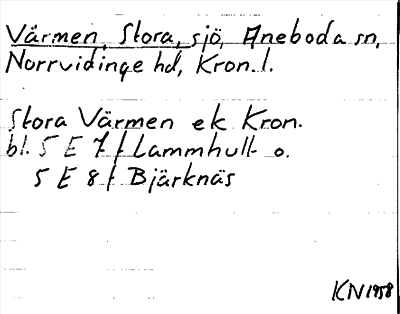 Värmen, Stora, sjö, Aneboda sn,
Norrvidinge hd, Kron. l.
Stora Värmen ek Kron.
bl. 5 E 7 f Lammhult o.
5 E 8 f Bjärknäs
KN 1958